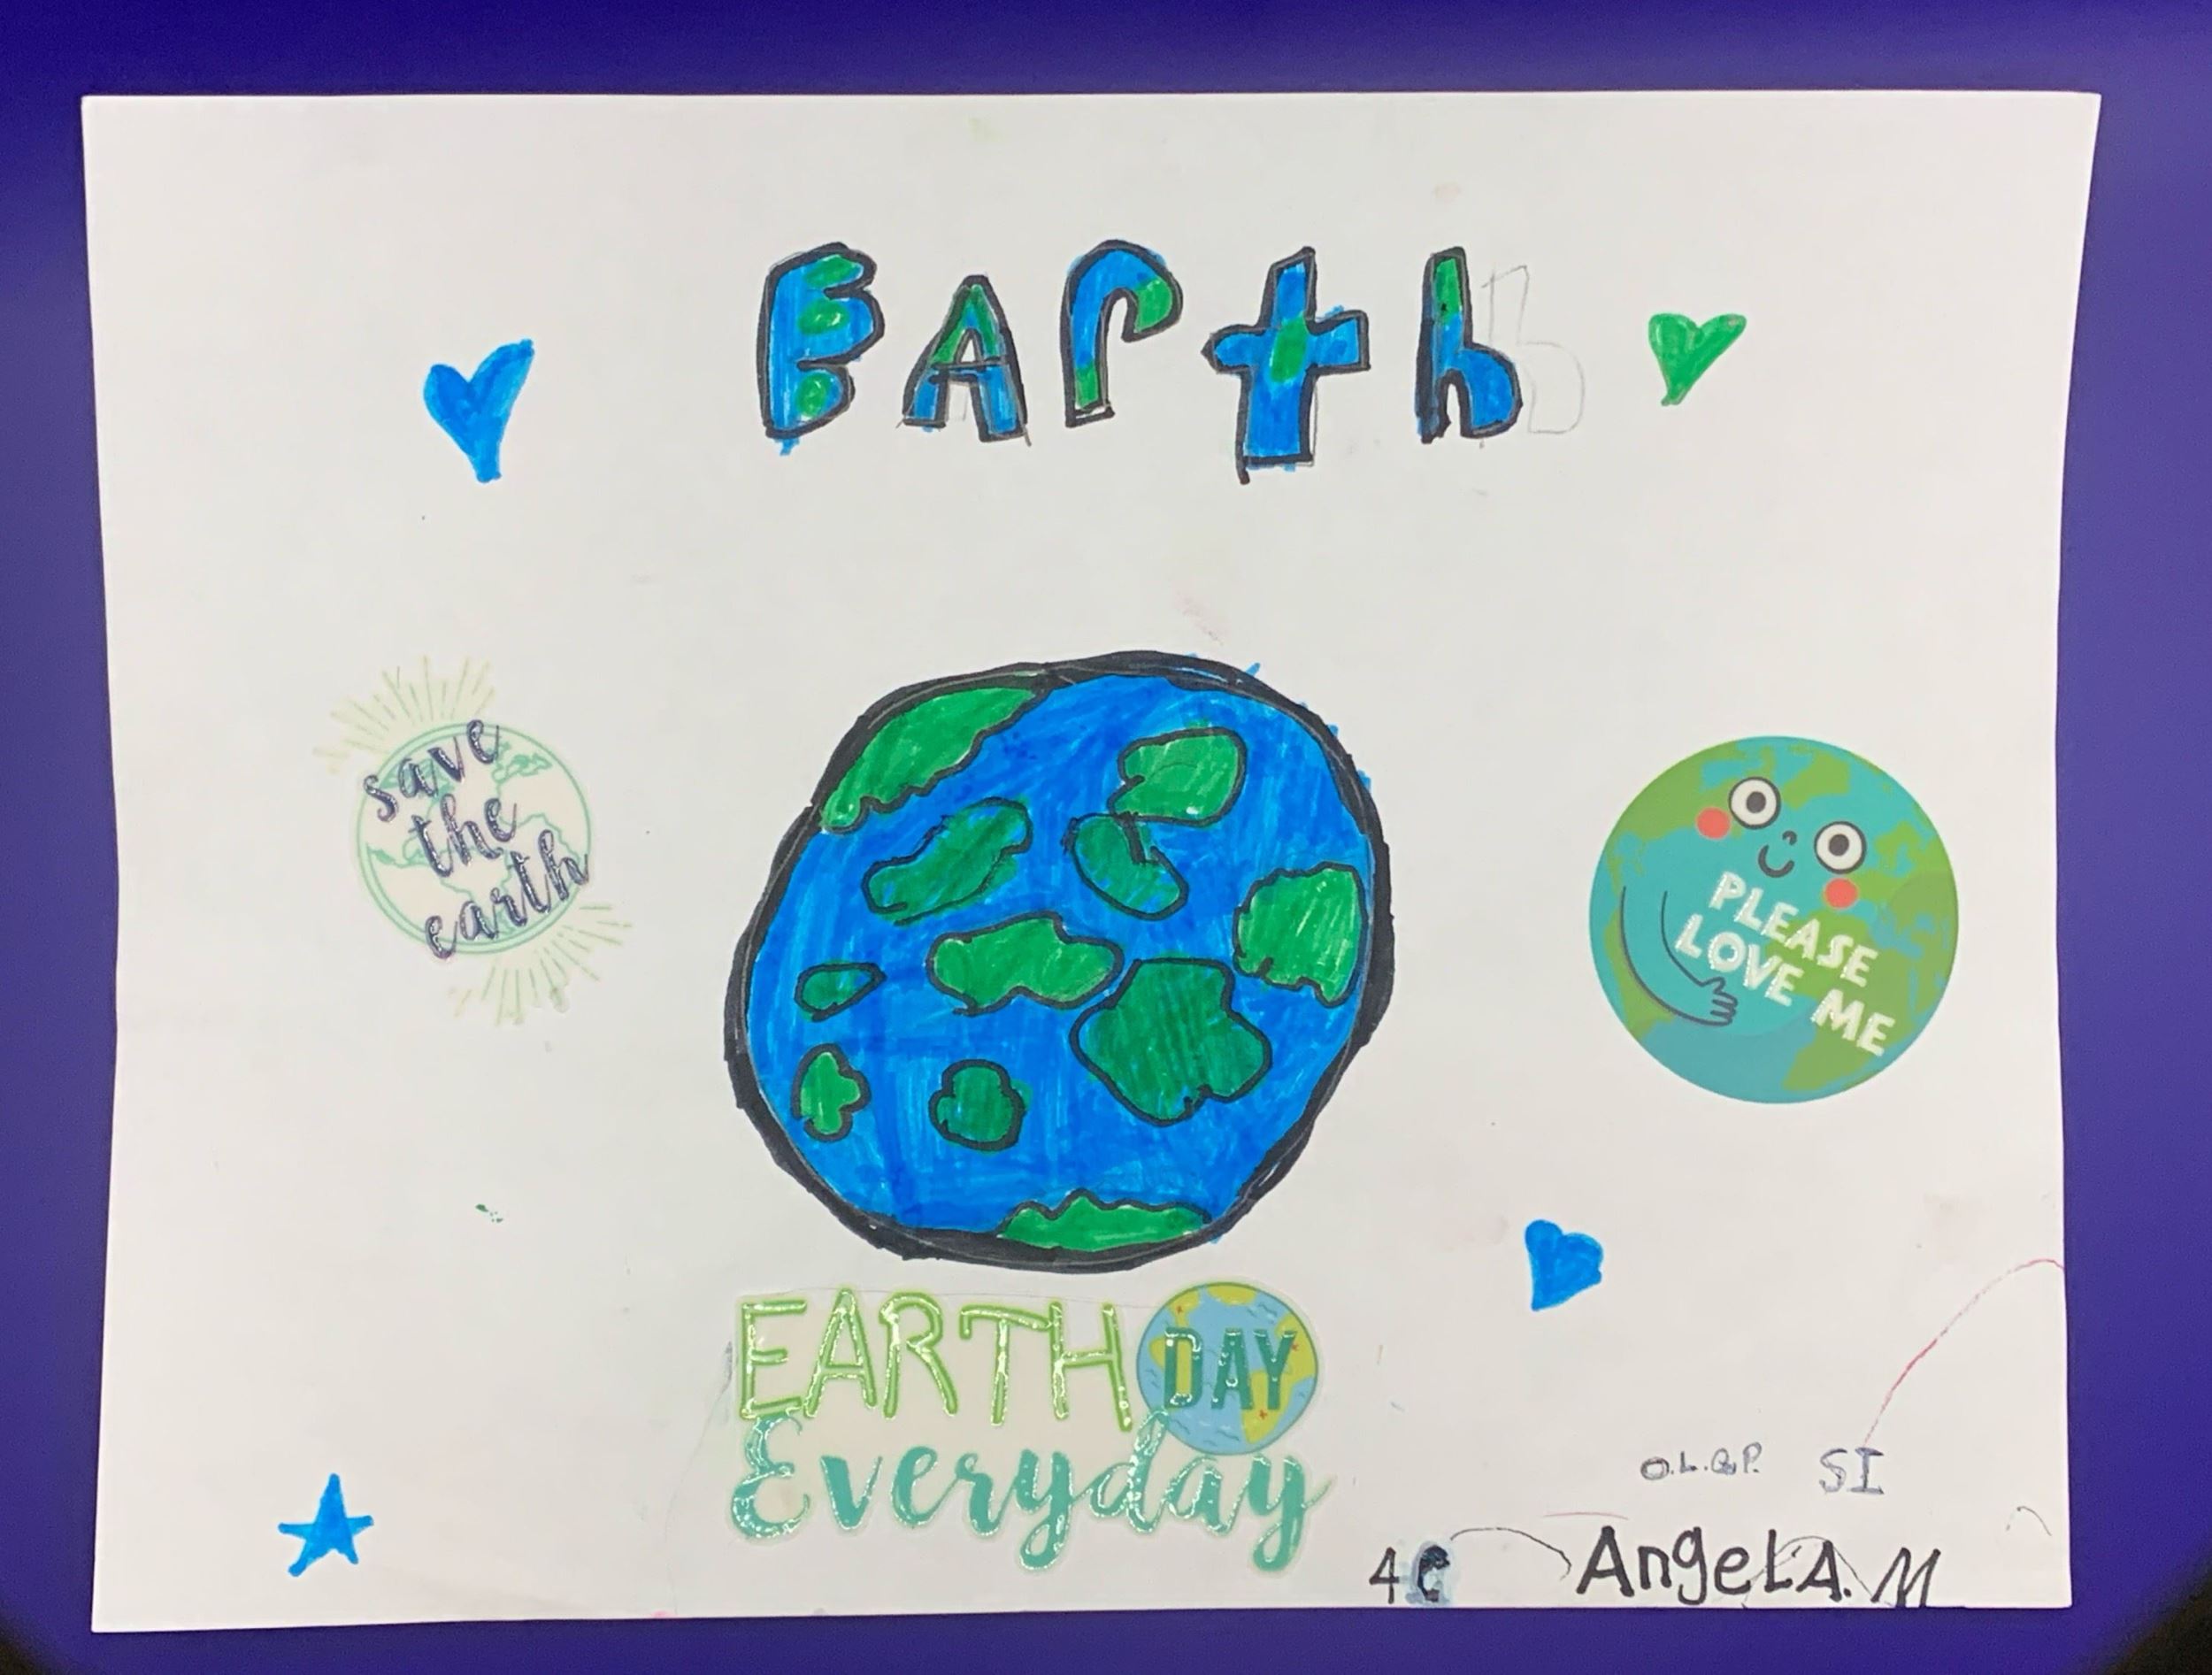 EArth
save
the
earth
PLEASE
LOVE ME
EARTH DAY
Everyday
O.L.Q.P. SI
4C Angel.A.M